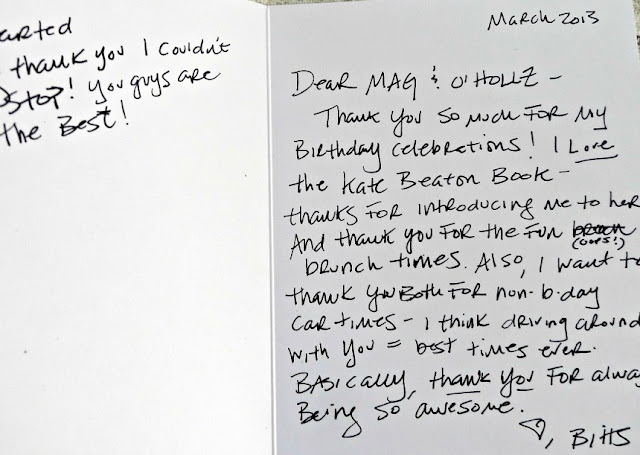 arted
thank you I couldn't
stop! You guys are
the Best!
March 2013
Dear MAG & O'HOLLZ –
Thank you so much for my
Birthday celebrations! I Love
the Kate Beaton Book –
thanks for introducing me to her
And thank you for the fun
(oops!)
brunch times. Also, I want to
thank you both for non-b-day
car times – I think driving around
with you = best times ever.
Basically, thank you for alwa
Being so awesome.
♡, Bitts